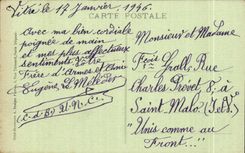 Vitré le 17 Janvier, 1946.
CARTE POSTALE
Avec ma bien cordiale
poignée de main
et mes plus affectueux
sentiments. Votre
Frère d'Armes et Ami
Eugène
Monsieur et Madame
Rue
Charles Prévet, 8, à
Saint Malo (I.et V.)
"Unis comme au
Front..."